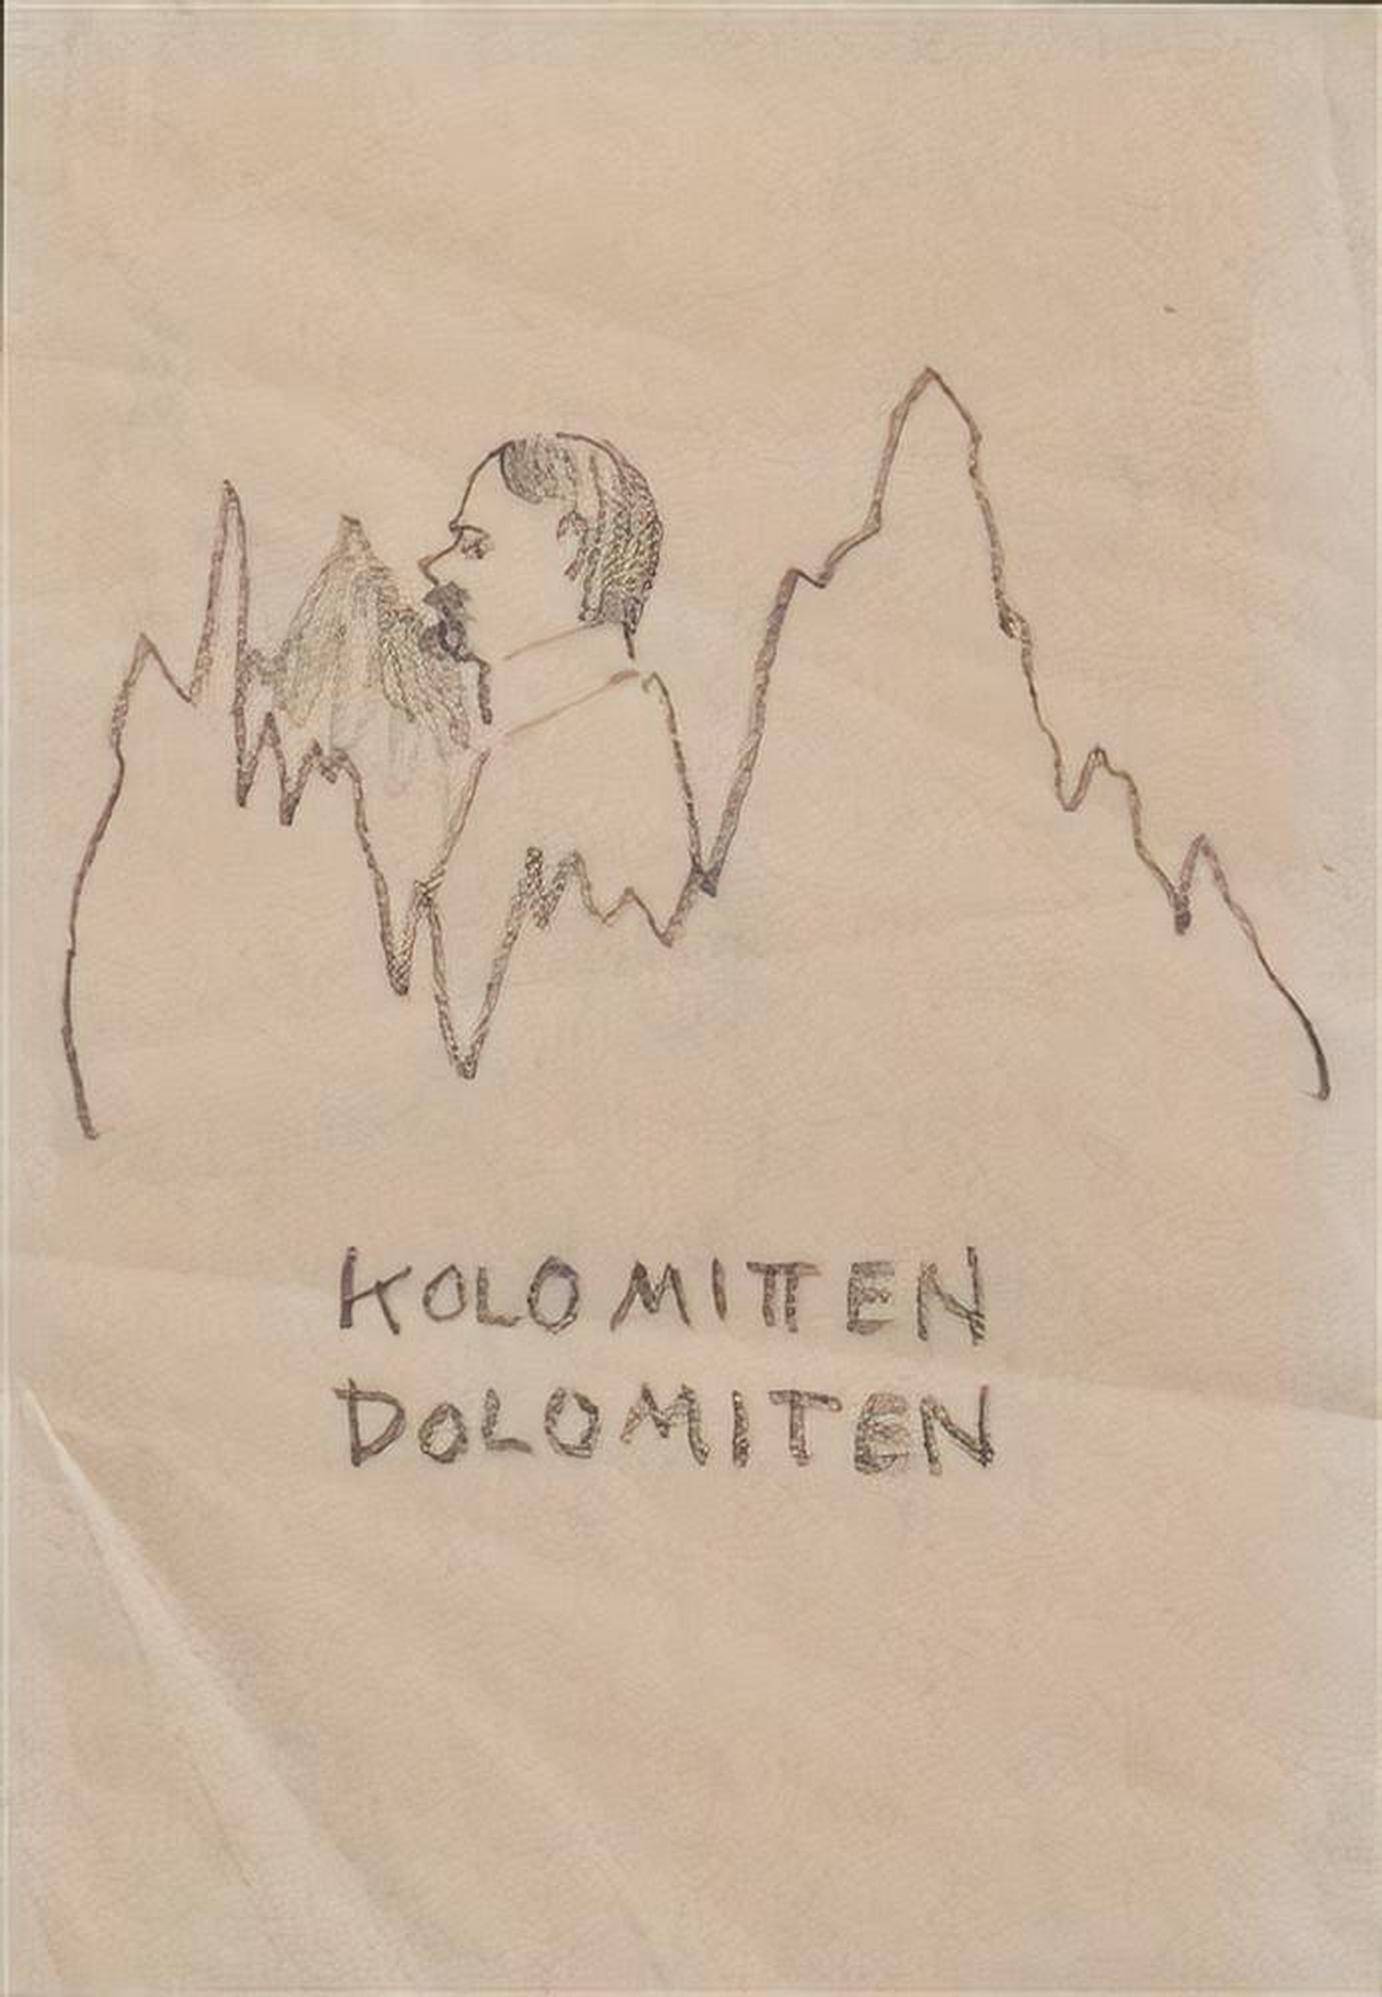 KOLO MITTEN
DOLOMITEN